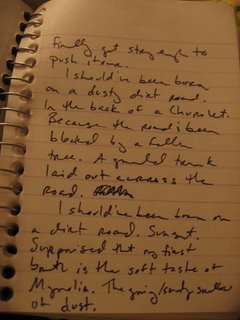 finally get strong enough to
push it down.
I should've been born
on a dusty dirt road.
In the back of a Chevrolet.
Because the road's been
blocked by a fallen
tree. A gnarled trunk
laid out across the
road.
I should've been born on
a dirt road. Sunset.
Surprised that my first
breath is the soft taste of
Magnolia. The sandy
of dust.